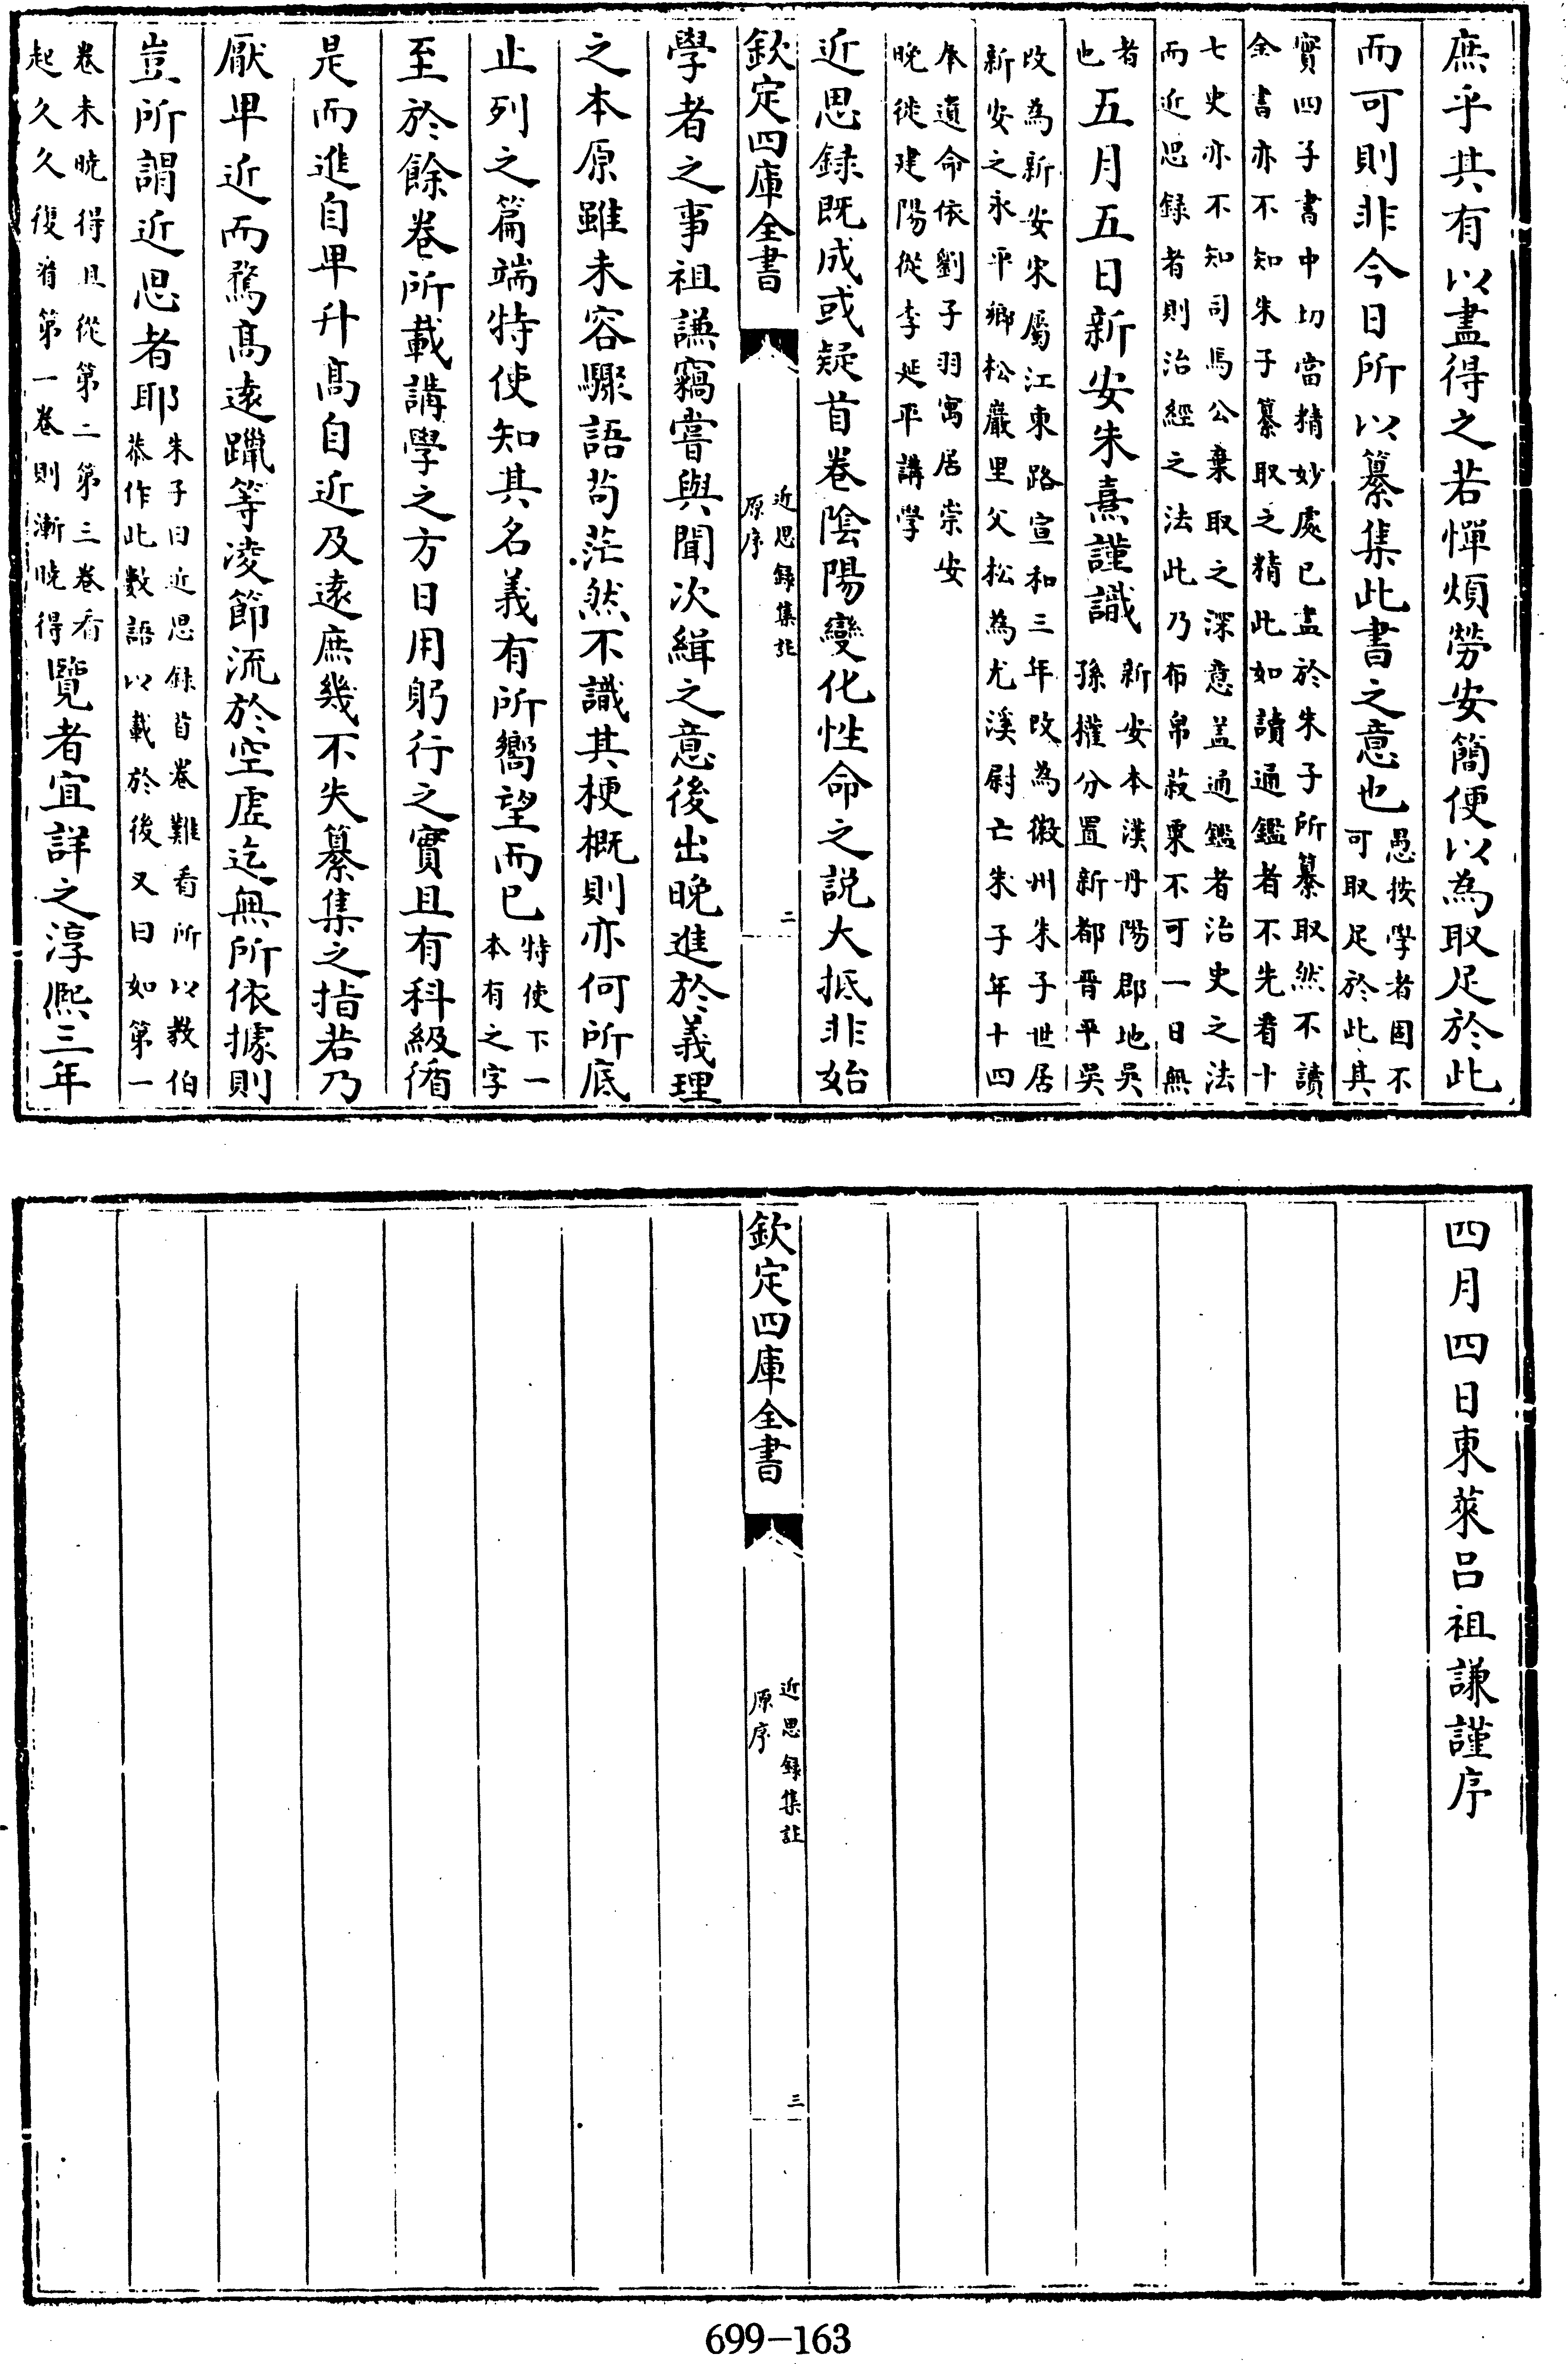 庶乎其有以盡得之若憚煩勞安簡便以為取足於此
而可則非今日所以纂集此書之意也愚按學者固不
可取足於此其
實四子書中切當精妙處已盡於朱子所纂取然不讀
全書亦不知朱子纂取之精此如讀通鑑者不先看十
七史亦不知司馬公棄取之深意蓋通鑑者治史之法
而近思録者則治經之法此乃布帛菽粟不可一日無
者
也五月五日新安朱熹謹識新安本漢丹陽郡地吳
孫權分置新都晉平吳
改為新安宋屬江東路宣和三年改為徽州朱子世居
新安之永平鄉松巖里父松為尤溪尉亡朱子年十四
奉遺命依劉子羽寓居崇安
晚徙建陽從李延平講學
近思録既成或疑首卷陰陽變化性命之說大抵非始
欽定四庫全書
近思録集註
原序
二
學者之事祖謙竊嘗與聞次緝之意後出晚進於義理
之本原雖未容驟語苟茫然不識其梗概則亦何所底
止列之篇端特使知其名義有所嚮望而已特使下一
本有之字
至於餘卷所載講學之方日用躬行之實且有科級循
是而進自卑升髙自近及遠庶幾不失纂集之指若乃
厭卑近而騖髙遠躐等凌節流於空虛迄無所依據則
豈所謂近思者耶朱子曰近思録首卷難看所以教伯
恭作此數語以載於後又曰如第一
卷未曉得且從第二第三卷看
起久久復看第一卷則漸曉得覽者宜詳之淳熙三年
四月四日東萊呂祖謙謹序
欽定四庫全書
近思録集註
原序
三
699-163